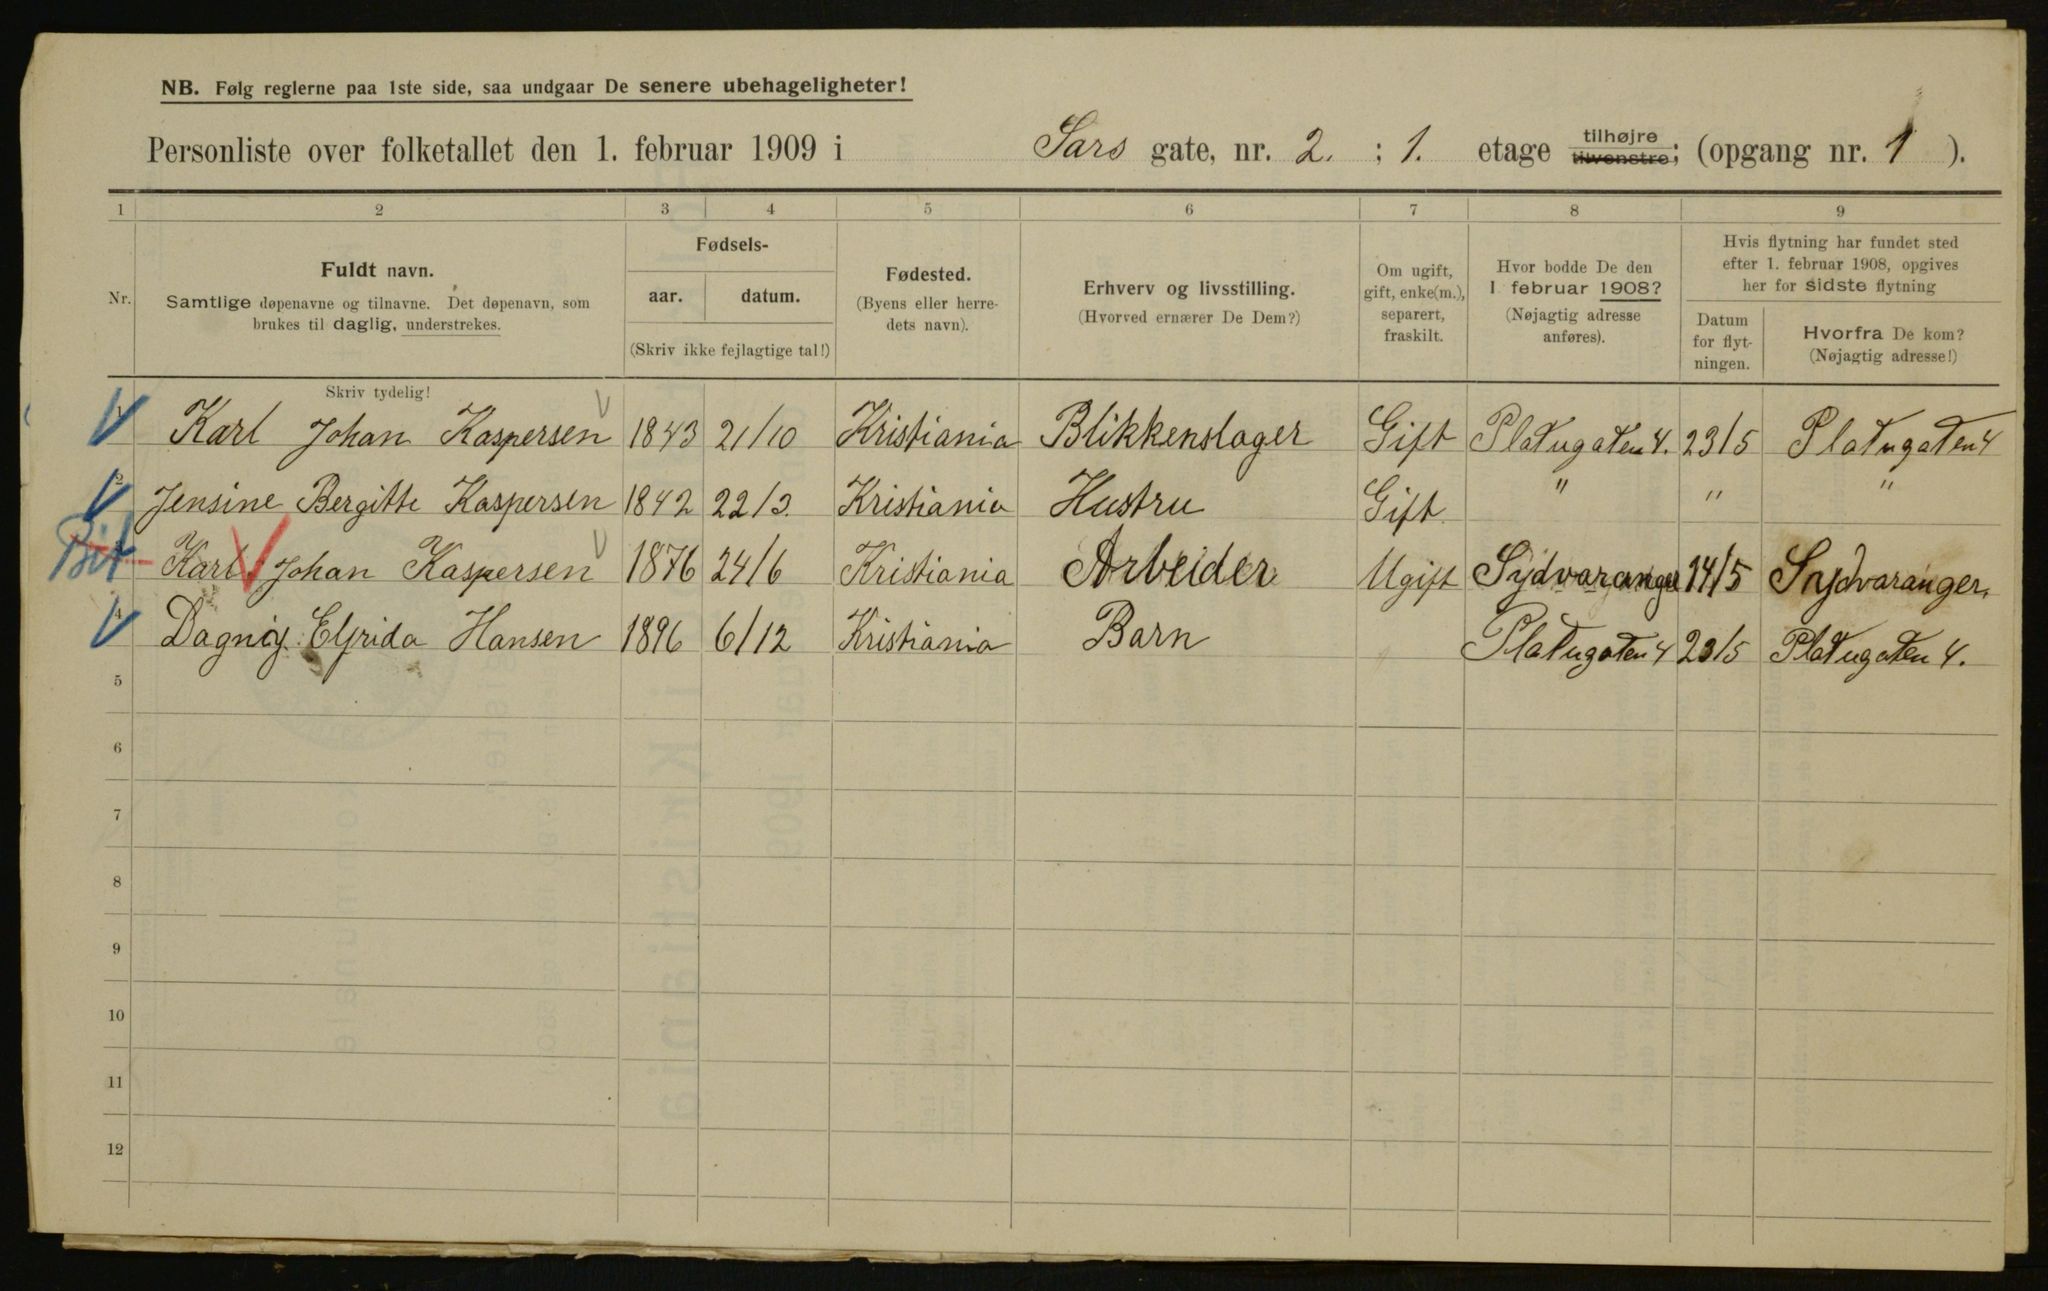 NB. Følg reglerne paa 1ste side, saa undgaar De senere ubehageligheter!
Personliste over folketallet den 1. februar 1909 i Sars gate, nr. 2. ; 1. etage tilhøjre tilvenstre; (opgang nr. 1 ).
1 2 3 4 5 6 7 8 9
Nr.
Fuldt navn.
Samtlige døpenavne og tilnavne. Det døpenavn, som
brukes til daglig, understrekes.
Skriv tydelig!
Fødsels-
aar. datum.
(Skriv ikke fejlagtige tal!)
Fødested.
(Byens eller herre-
dets navn).
Erhverv og livsstilling.
(Hvorved ernærer De Dem?)
Om ugift,
gift, enke(m.),
separert,
fraskilt.
Hvor bodde De den
1 februar 1908?
(Nøjagtig adresse
anføres).
Hvis flytning har fundet sted
efter 1. februar 1908, opgives
her for sidste flytning
Datum
for flyt-
ningen.
Hvorfra De kom?
(Nøjagtig adresse!)
1 Karl Johan Kaspersen 1843 21/10 Kristiania Blikkenslager Gift Platugaten 4. 23/5 Platugaten 4
2 Jensine Bergitte Kaspersen 1842 22/3. Kristiania Hustru Gift. " " "
3 Karl Johan Kaspersen 1876 24/6 Kristiania Arbeider Ugift Sydvaranger 14/5 Sydvaranger,
4 Dagny Elfrida Hansen 1896 6/12 Kristiania Barn Platugaten 4 23/5 Platugaten 4.
5
6
7
8
9
10
11
12